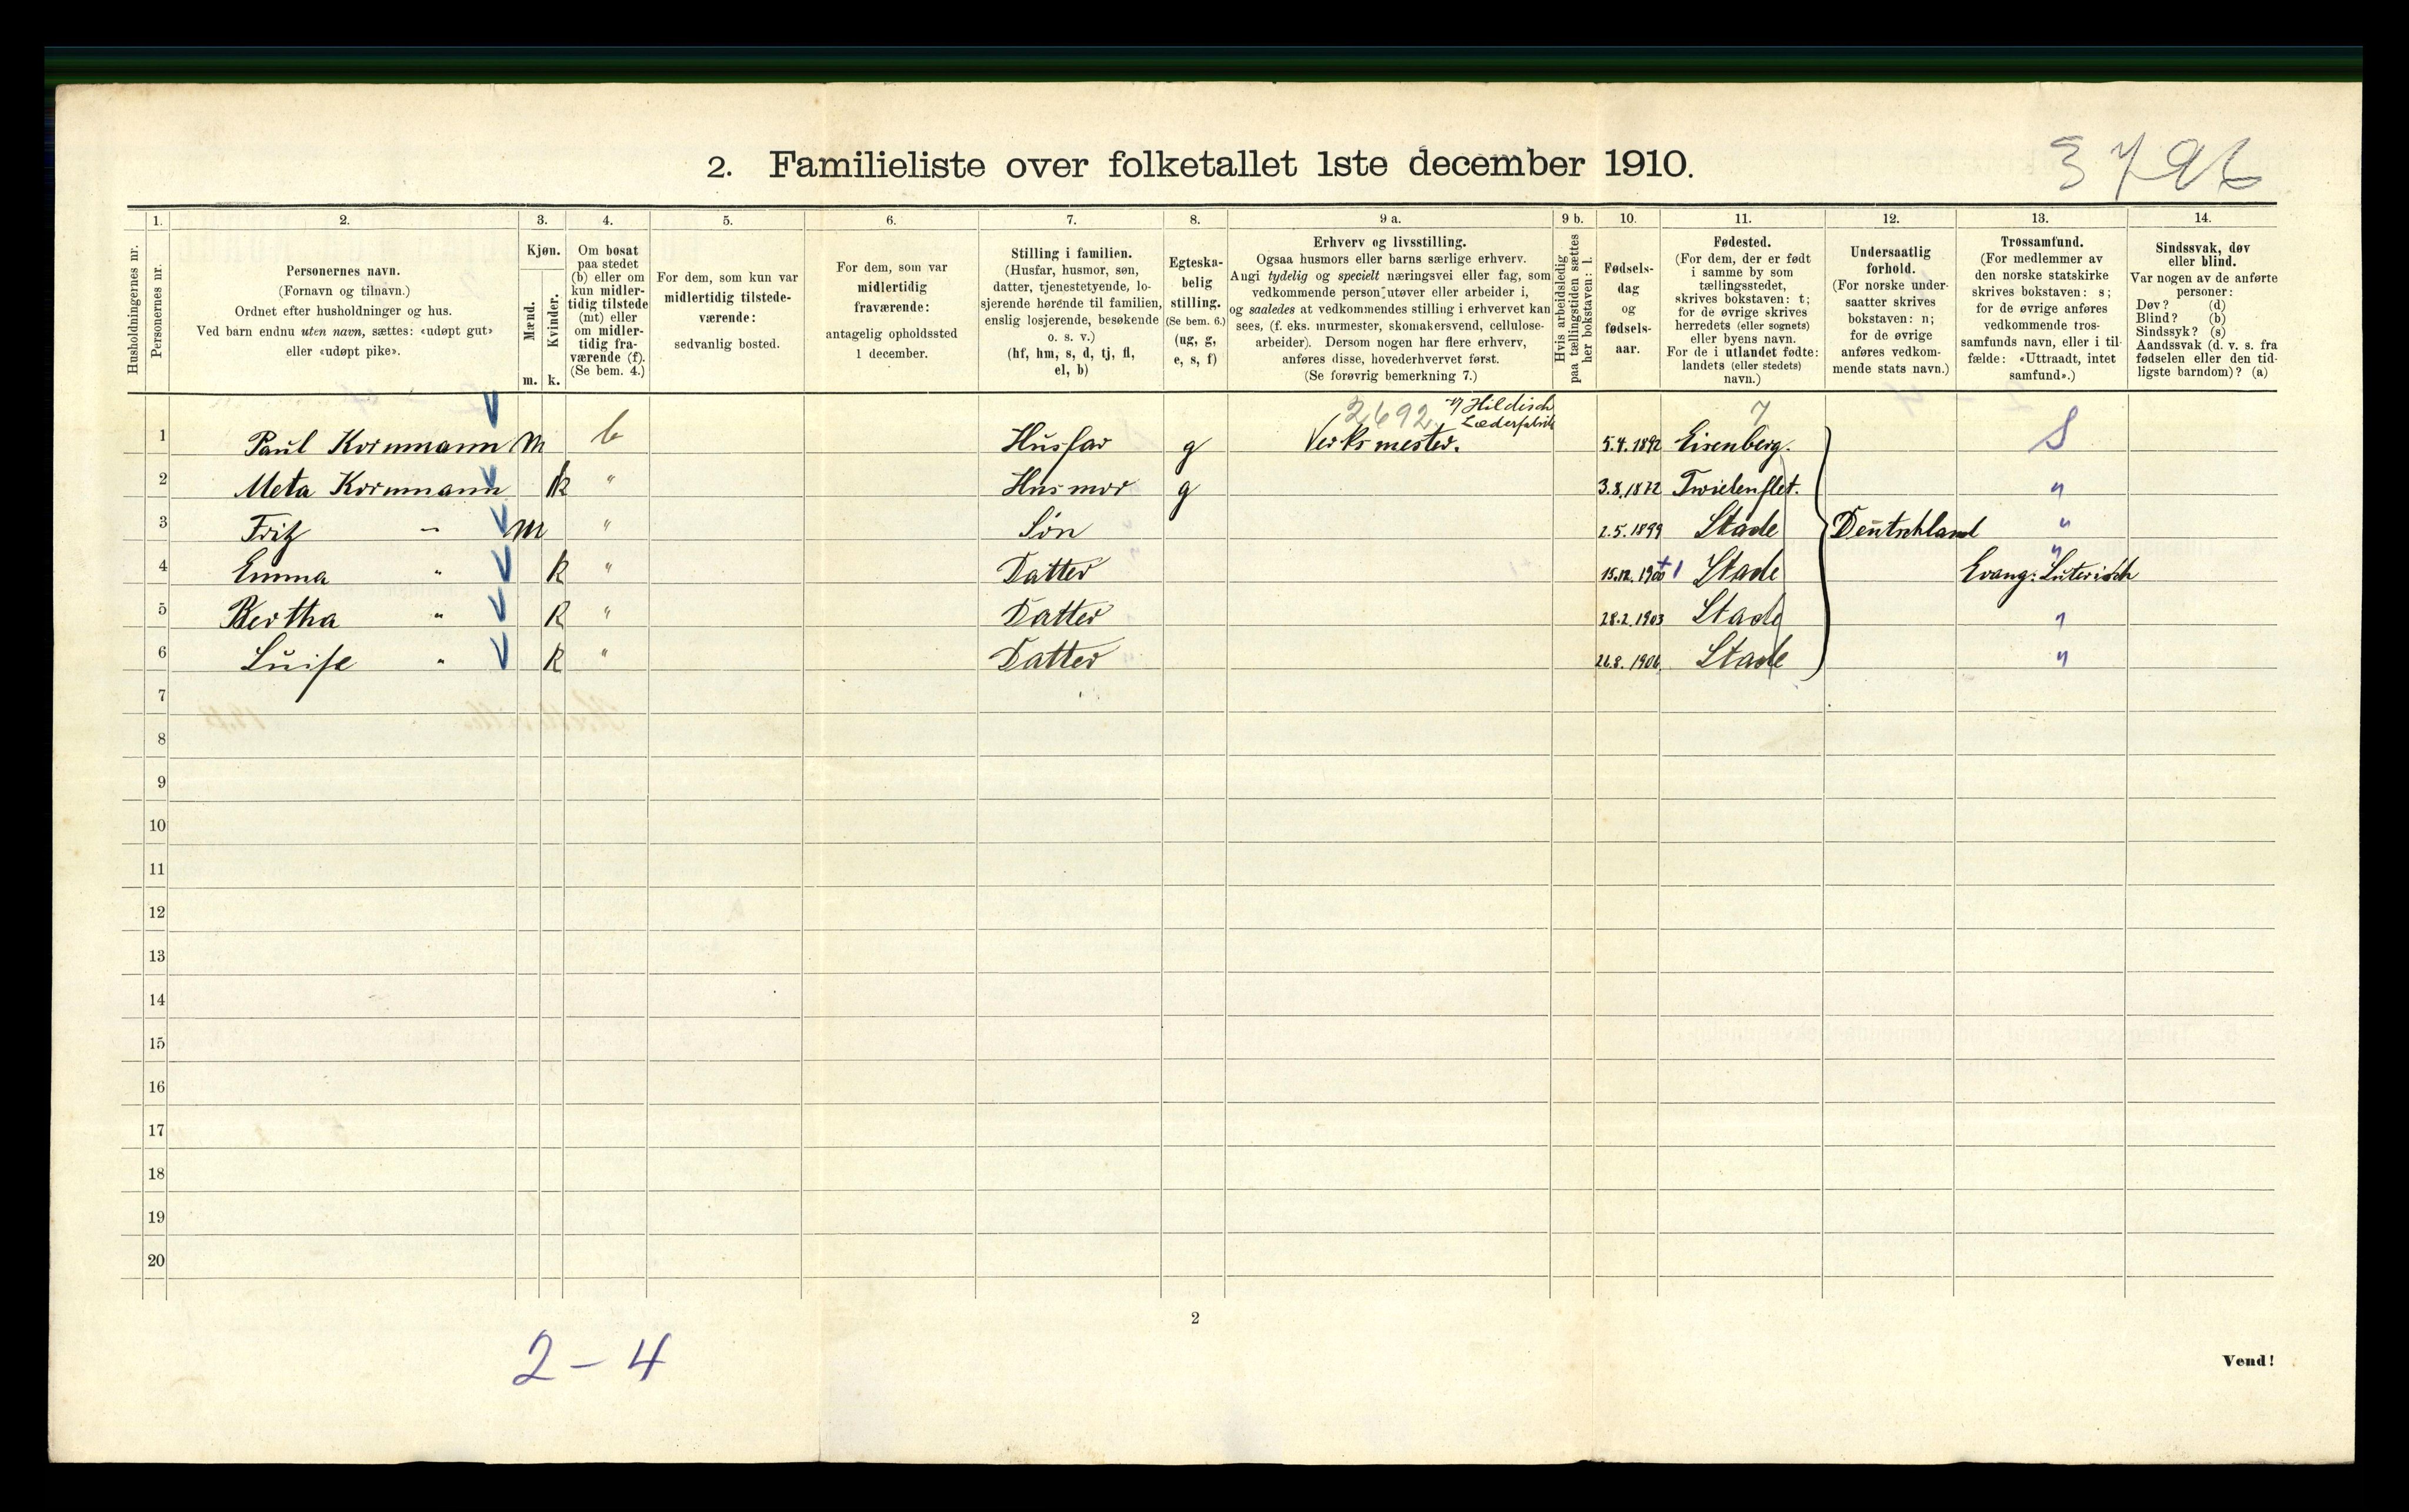 3796
2. Familieliste over folketallet 1ste december 1910.
1. 2. 3. 4. 5. 6. 7. 8. 9 a. 9 b. 10. 11. 12. 13. 14.
Husholdningernes nr.
Personernes nr.
Personernes navn.
(Fornavn og tilnavn.)
Ordnet efter husholdninger og hus.
Ved barn endnu uten navn, sættes: «udøpt gut»
eller «udøpt pike».
Kjøn.
Mænd.
Kvinder.
m. k.
Om bosat
paa stedet
(b) eller om
kun midler-
tidig tilstede
(mt) eller
om midler-
tidig fra-
værende (f).
(Se bem. 4.)
For dem, som kun var
midlertidig tilstede-
værende:
sedvanlig bosted.
For dem, som var
midlertidig
fraværende:
antagelig opholdssted
1 december.
Stilling i familien.
(Husfar, husmor, søn,
datter, tjenestetyende, lo-
sjerende hørende til familien,
enslig losjerende, besøkende
o. s. v.)
(hf, hm, s, d, tj, fl,
el, b)
Egteska-
belig
stilling.
(Se bem. 6.)
(ug, g,
e, s, f)
Erhverv og livsstilling.
Ogsaa husmors eller barns særlige erhverv.
Angi tydelig og specielt næringsvei eller fag, som
vedkommende person utøver eller arbeider i,
og saaledes at vedkommendes stilling i erhvervet kan
sees, (f. eks. murmester, skomakersvend, cellulose-
arbeider). Dersom nogen har flere erhverv,
anføres disse, hovederhvervet først.
(Se forøvrig bemerkning 7.)
Hvis arbeidsledig
paa tællingstiden sættes
her bokstaven: l.
Fødsels-
dag
og
fødsels-
aar.
Fødested.
(For dem, der er født
i samme by som
tællingsstedet,
skrives bokstaven: t;
for de øvrige skrives
herredets (eller sognets)
eller byens navn.
For de i utlandet fødte:
landets (eller stedets)
navn.)
Undersaatlig
forhold.
(For norske under-
saatter skrives
bokstaven: n;
for de øvrige
anføres vedkom-
mende stats navn.)
Trossamfund.
(For medlemmer av
den norske statskirke
skrives bokstaven: s;
for de øvrige anføres
vedkommende tros-
samfunds navn, eller i til-
fælde: «Uttraadt, intet
samfund».)
Sindssvak, døv
eller blind.
Var nogen av de anførte
personer:
Døv? (d)
Blind? (b)
Sindssyk? (s)
Aandssvak (d. v. s. fra
fødselen eller den tid-
ligste barndom)? (a)
2692 Hildisch 7
Læderfabrik
1 Paul Kornmann m b Husfar g Verksmester. 5.4.1892 Eisenberg. S
2 Meta Kornmann k " Husmor g 3.8.1872 Twielenflet. "
3 Fritz – m " Sön 2.5.1899 Stade Deutschland "
"
4 Emma " k " Datter 15.12.1900 + 1 Stade Evang. Luterisch
5 Bertha " k " Datter 28.2.1903 Stade "
6 Luise " k " Datter 26.8.1906 Stade "
7
8
9
10
11
12
13
14
15
16
17
18
19
20
2
2 – 4
Vend!